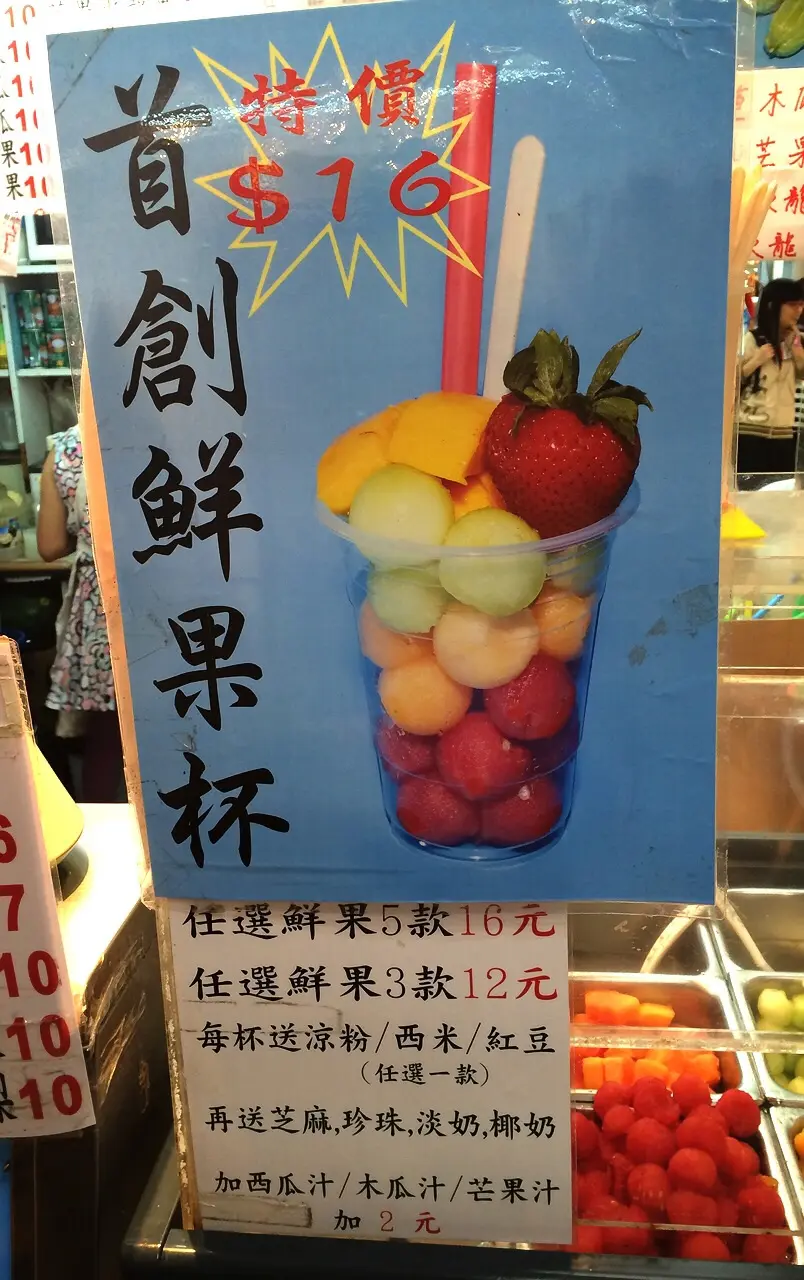 首創鮮果杯
特價
$16
任選鮮果5款16元
任選鮮果3款12元
每杯送涼粉/西米/紅豆
(任選一款)
再送芝麻,珍珠,淡奶,椰奶
加西瓜汁/木瓜汁/芒果汁
加 2 元
10
10
瓜10
果10
果10
6
7
10
10
果10
木瓜
芒果
火龍
火龍